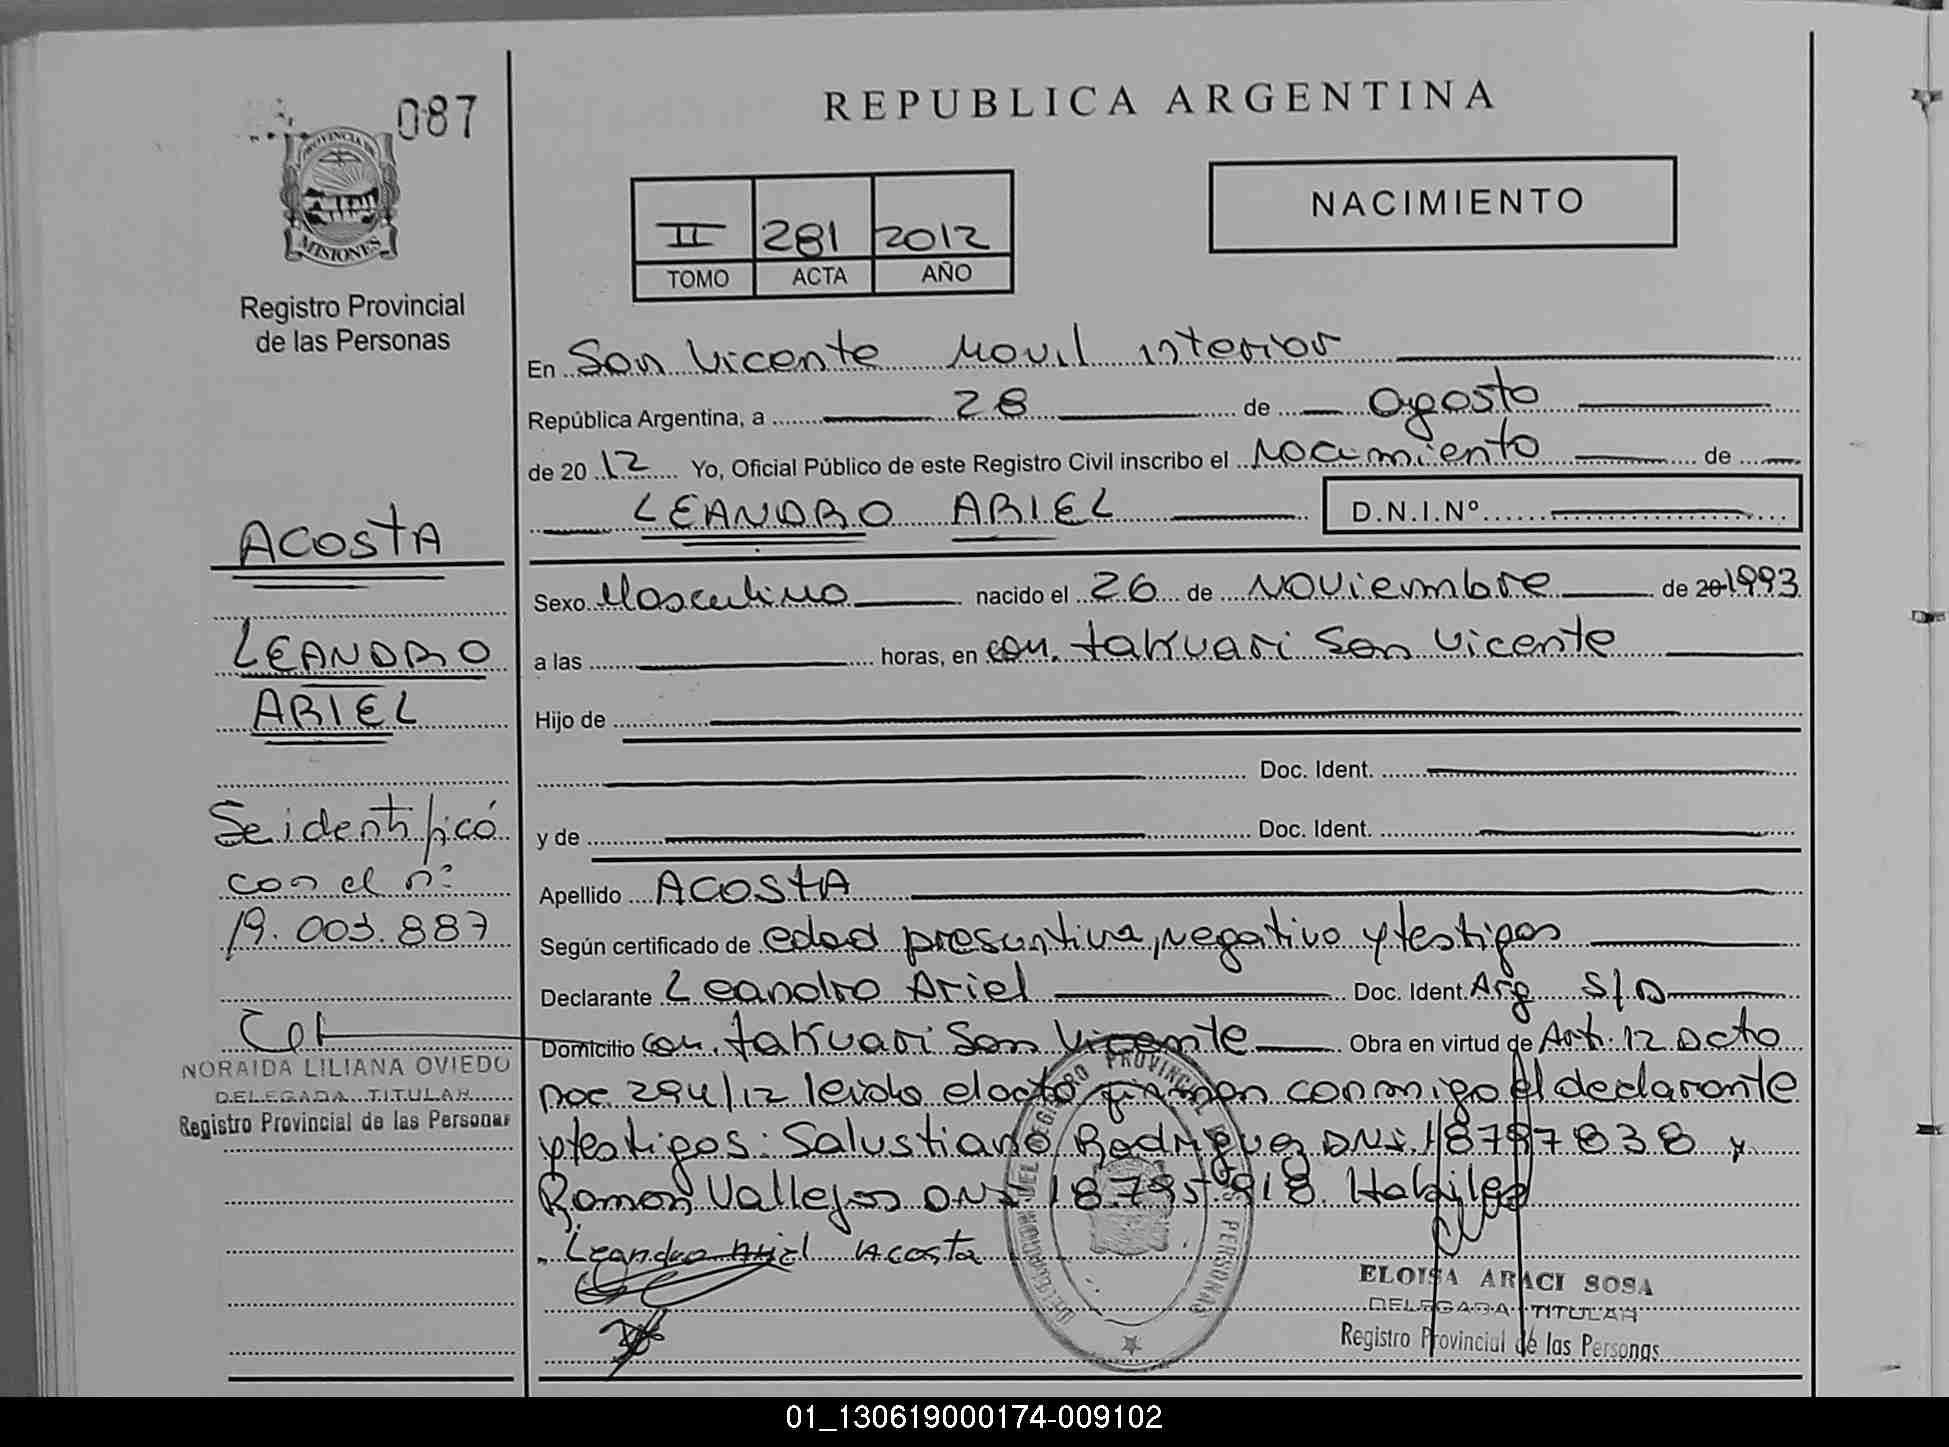 087
PROVINCIA DE
MISIONES
Registro Provincial
de las Personas
ACOSTA
LEANDRO
ARIEL
Se identificó
con el nº
19.003.887
NORAIDA LILIANA OVIEDO
DELEGADA TITULAR
Registro Provincial de las Personas
REPUBLICA ARGENTINA
II 281 2012
TOMO ACTA AÑO
NACIMIENTO
En San Vicente Movil interior
República Argentina, a 28 de agosto
de 2012 Yo, Oficial Público de este Registro Civil inscribo el Nacimiento de
LEANDRO ARIEL D.N.I.Nº
Sexo Masculino nacido el 26 de Noviembre de 20 1993
a las horas, en com. takuari San Vicente
Hijo de
Doc. Ident.
y de Doc. Ident.
Apellido ACOSTA
Según certificado de edad presuntiva, negativo y testigos
Declarante Leandro Ariel Doc. Ident. Arg S/D
Domicilio com. takuari San Vicente Obra en virtud de Art. 12 Dcto
Nac 294/12 leida el acto firman conmigo el declarante
y testigos: Salustiano Rodriguez DNI 18787838 y
Ramon Vallejos DNI 18.795.918. Habiles
Leandro Ariel Acosta
ELOISA ARACI SOSA
DELEGADA TITULAR
Registro Provincial de las Personas
01_130619000174-009102